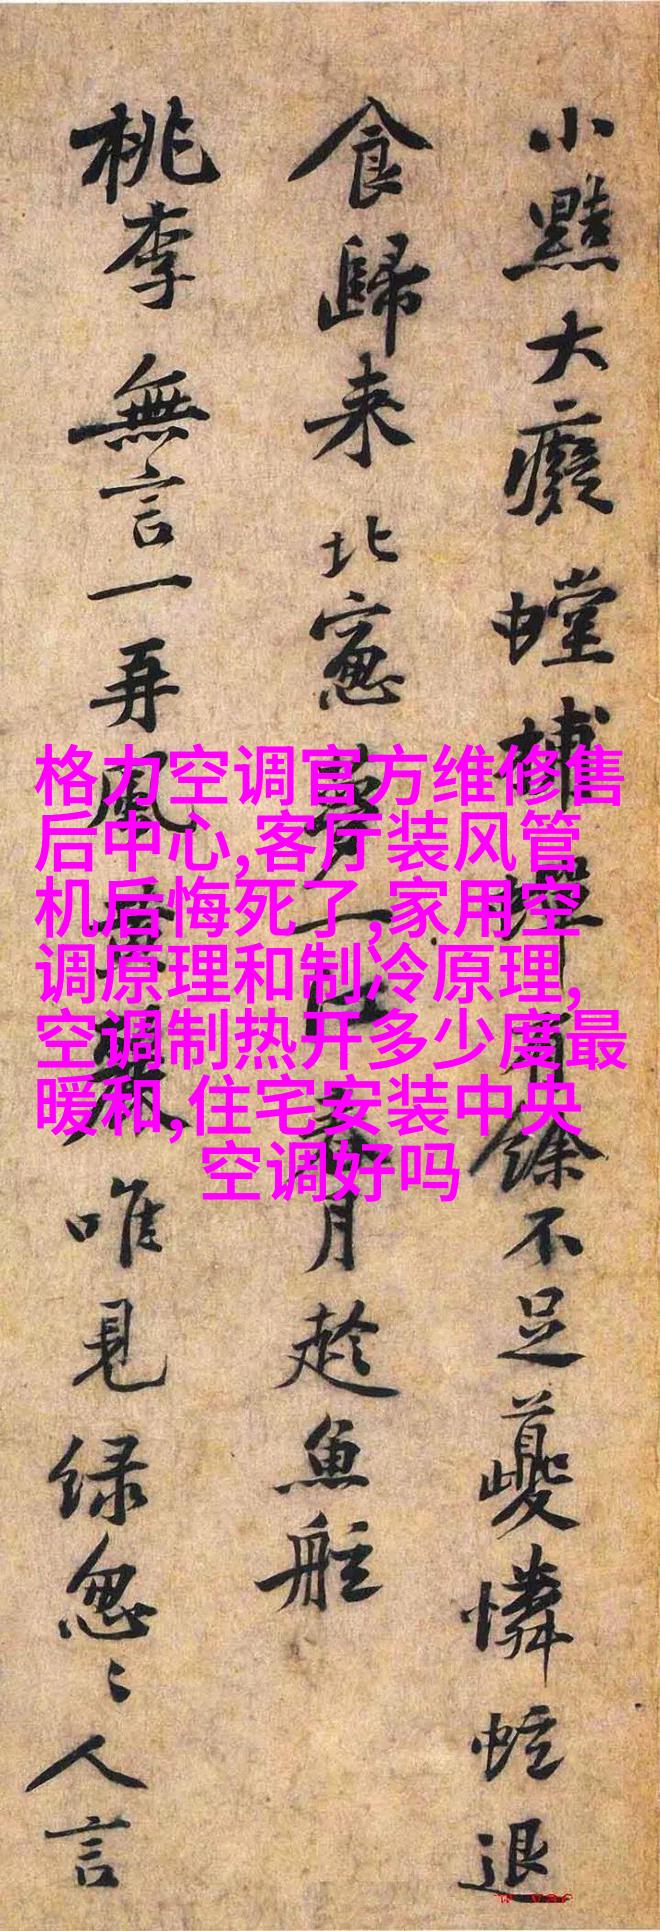 小黠大癡螳捕蟬有餘不足夔憐蚿退
食歸来北窻夢一江風月趂魚船
桃李無言一再風黃鸝唯見緑忩〻人言
格力空调官方维修售
后中心,客厅装风管
机后悔死了,家用空
调原理和制冷原理,
空调制热开多少度最
暖和,住宅安装中央
空调好吗